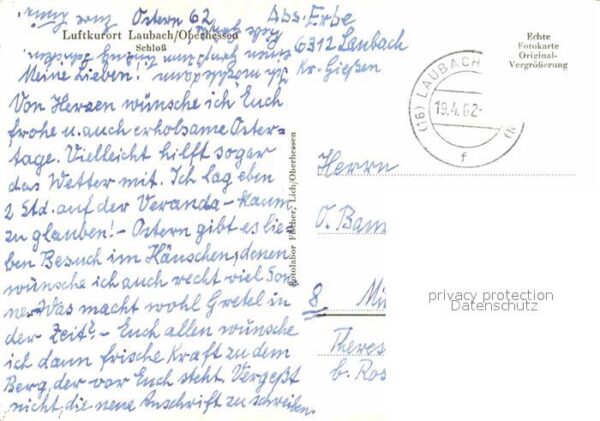 Ostern 62
Abs. Erbe
6312 Laubach
Kr. Gießen
Luftkurort Laubach/Oberhessen
Schloß
Echte
Fotokarte
Original-
Vergrößerung
(16) LAUBACH
19.4.62-
f
Meine Lieben!
Von Herzen wünsche ich Euch
frohe u. auch erholsame Oster-
tage. Vielleicht hilft sogar
das Wetter mit. Ich lag eben
2 Std. auf der Veranda - kaum
zu glauben! - Ostern gibt es lie-
ben Besuch im Häuschen, denen
wünsche ich auch recht viel Son-
ne. Was macht wohl Gretel in
der Zeit? - Euch allen wünsche
ich dann frische Kraft zu dem
Berg, der vor Euch steht. Vergeßt
nicht, die neue Anschrift zu schreiben.
Fotolabor Fischer, Lich/Oberhessen
Herrn
O. Bam
8 Mü
Theres
b. Ros
privacy protection
Datenschutz